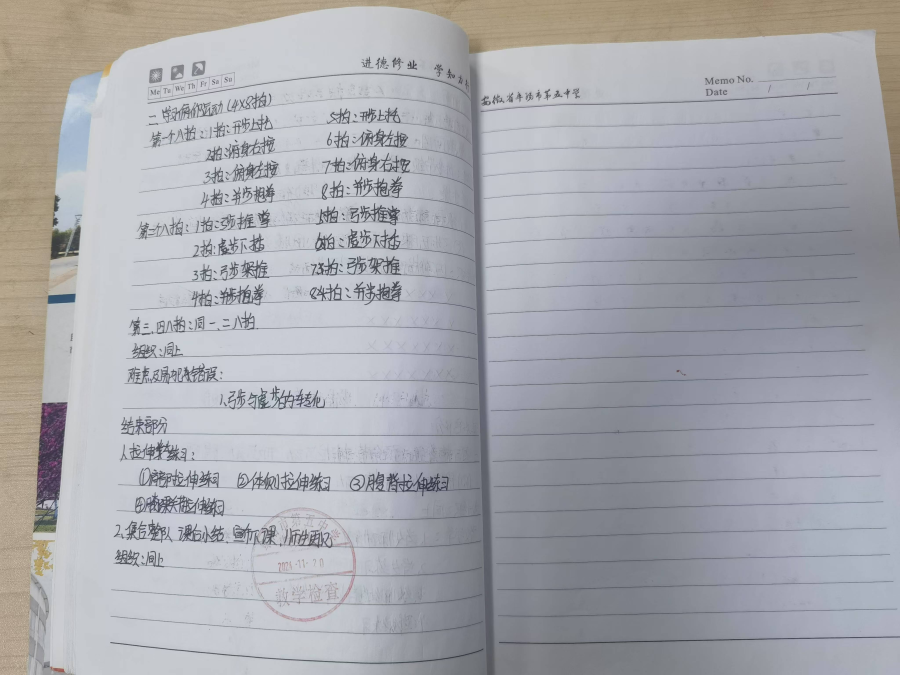 进德修业 学知
Mo Tu We Th Fr Sa Su
二、学习俯仰运动(4×8拍)
第一个八拍:1拍:开步上托 5拍:开步上托
2拍:俯身右按 6拍:俯身左按
3拍:俯身左按 7拍:俯身右按
4拍:并步抱拳 8拍:并步抱拳
第二个八拍:1拍:弓步推掌 5拍:弓步推掌
2拍:虚步下按 6拍:虚步下按
3拍:弓步架推 7拍:弓步架推
4拍:并步抱拳 8拍:并步抱拳
第三、四八拍:同一、二八拍.
组织:同上
难点及易犯错误:
1.弓步与虚步的转化
结束部分
1.拉伸练习:
①肩部拉伸练习 ②体侧拉伸练习 ③腹背拉伸练习
④膝关节拉伸练习
2.集合整队、课后小结、宣布下课、师生再见
组织:同上
第五中学
2024-11-20
教学检查
安徽省 市第五中学
Memo No.
Date / /